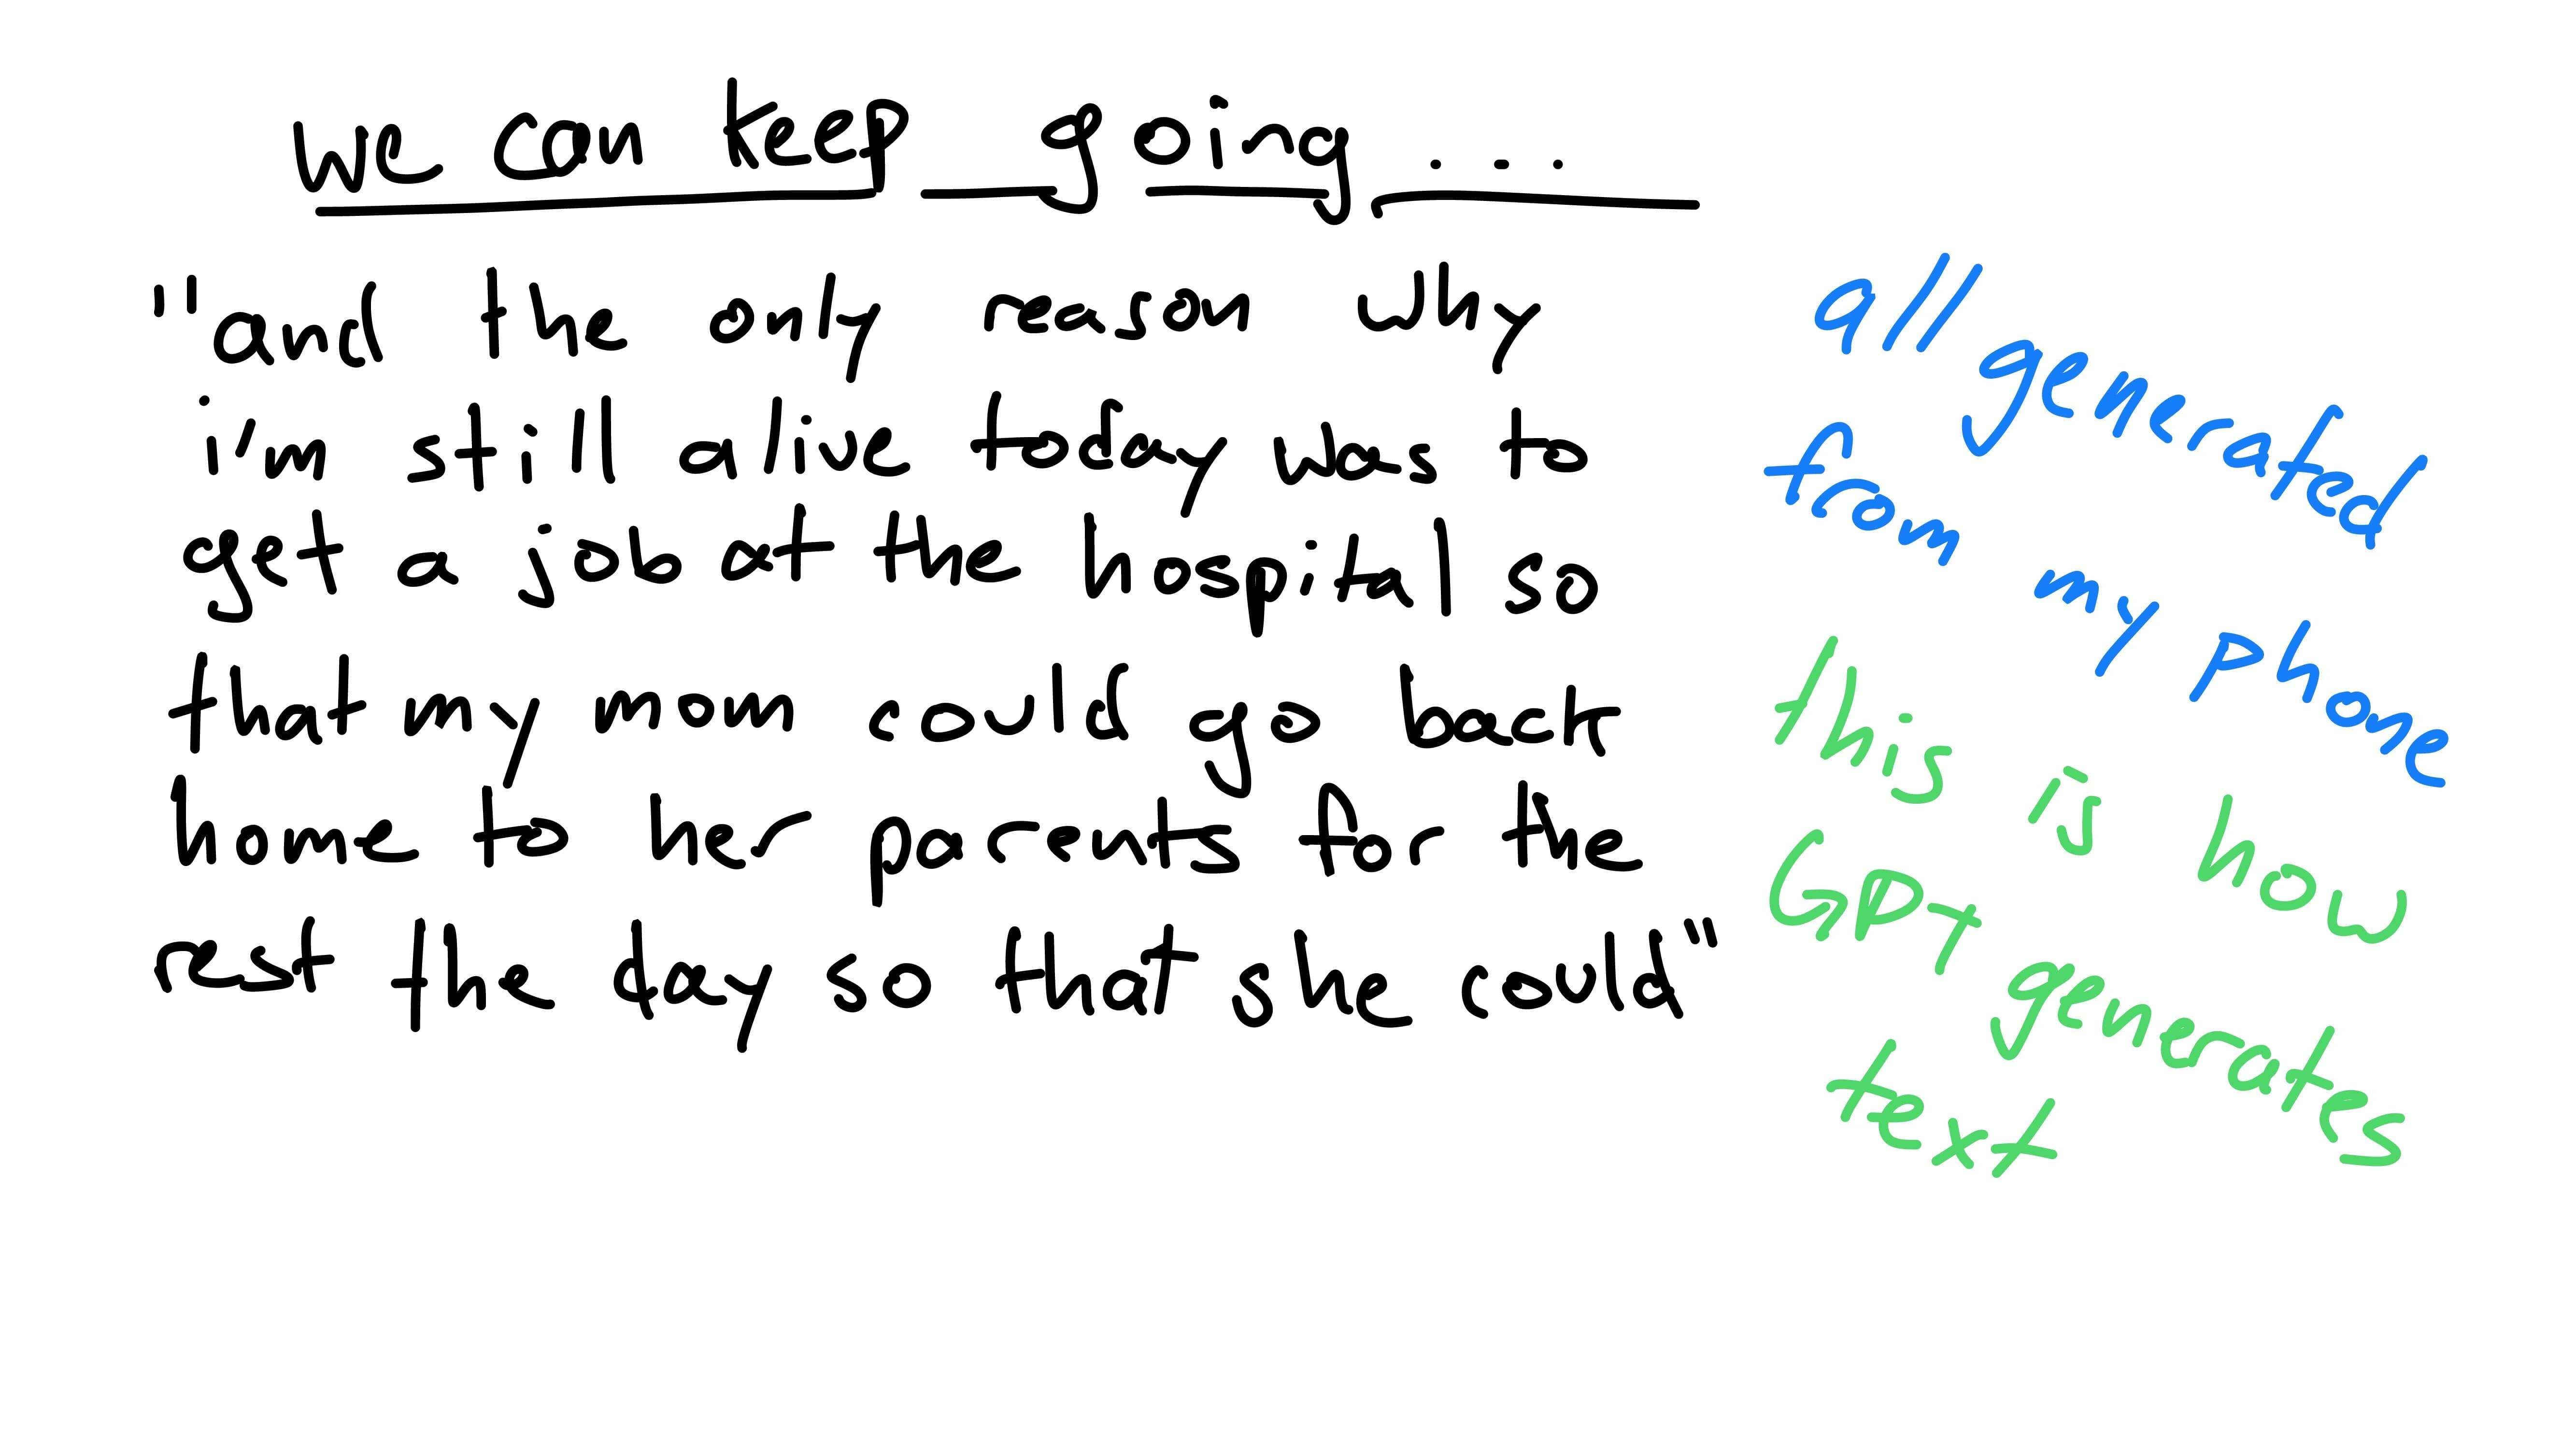 we can keep going...
"and the only reason why
i'm still alive today was to
get a job at the hospital so
that my mom could go back
home to her parents for the
rest the day so that she could"
all generated
from my phone
this is how
GPT generates
text